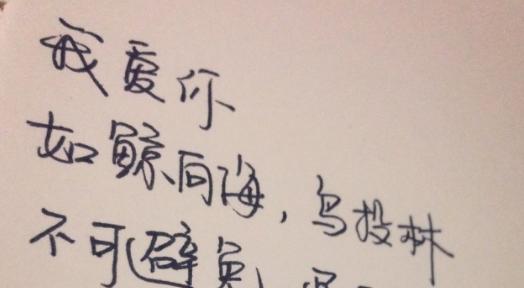 我爱你
如鲸向海，鸟投林
不可避免